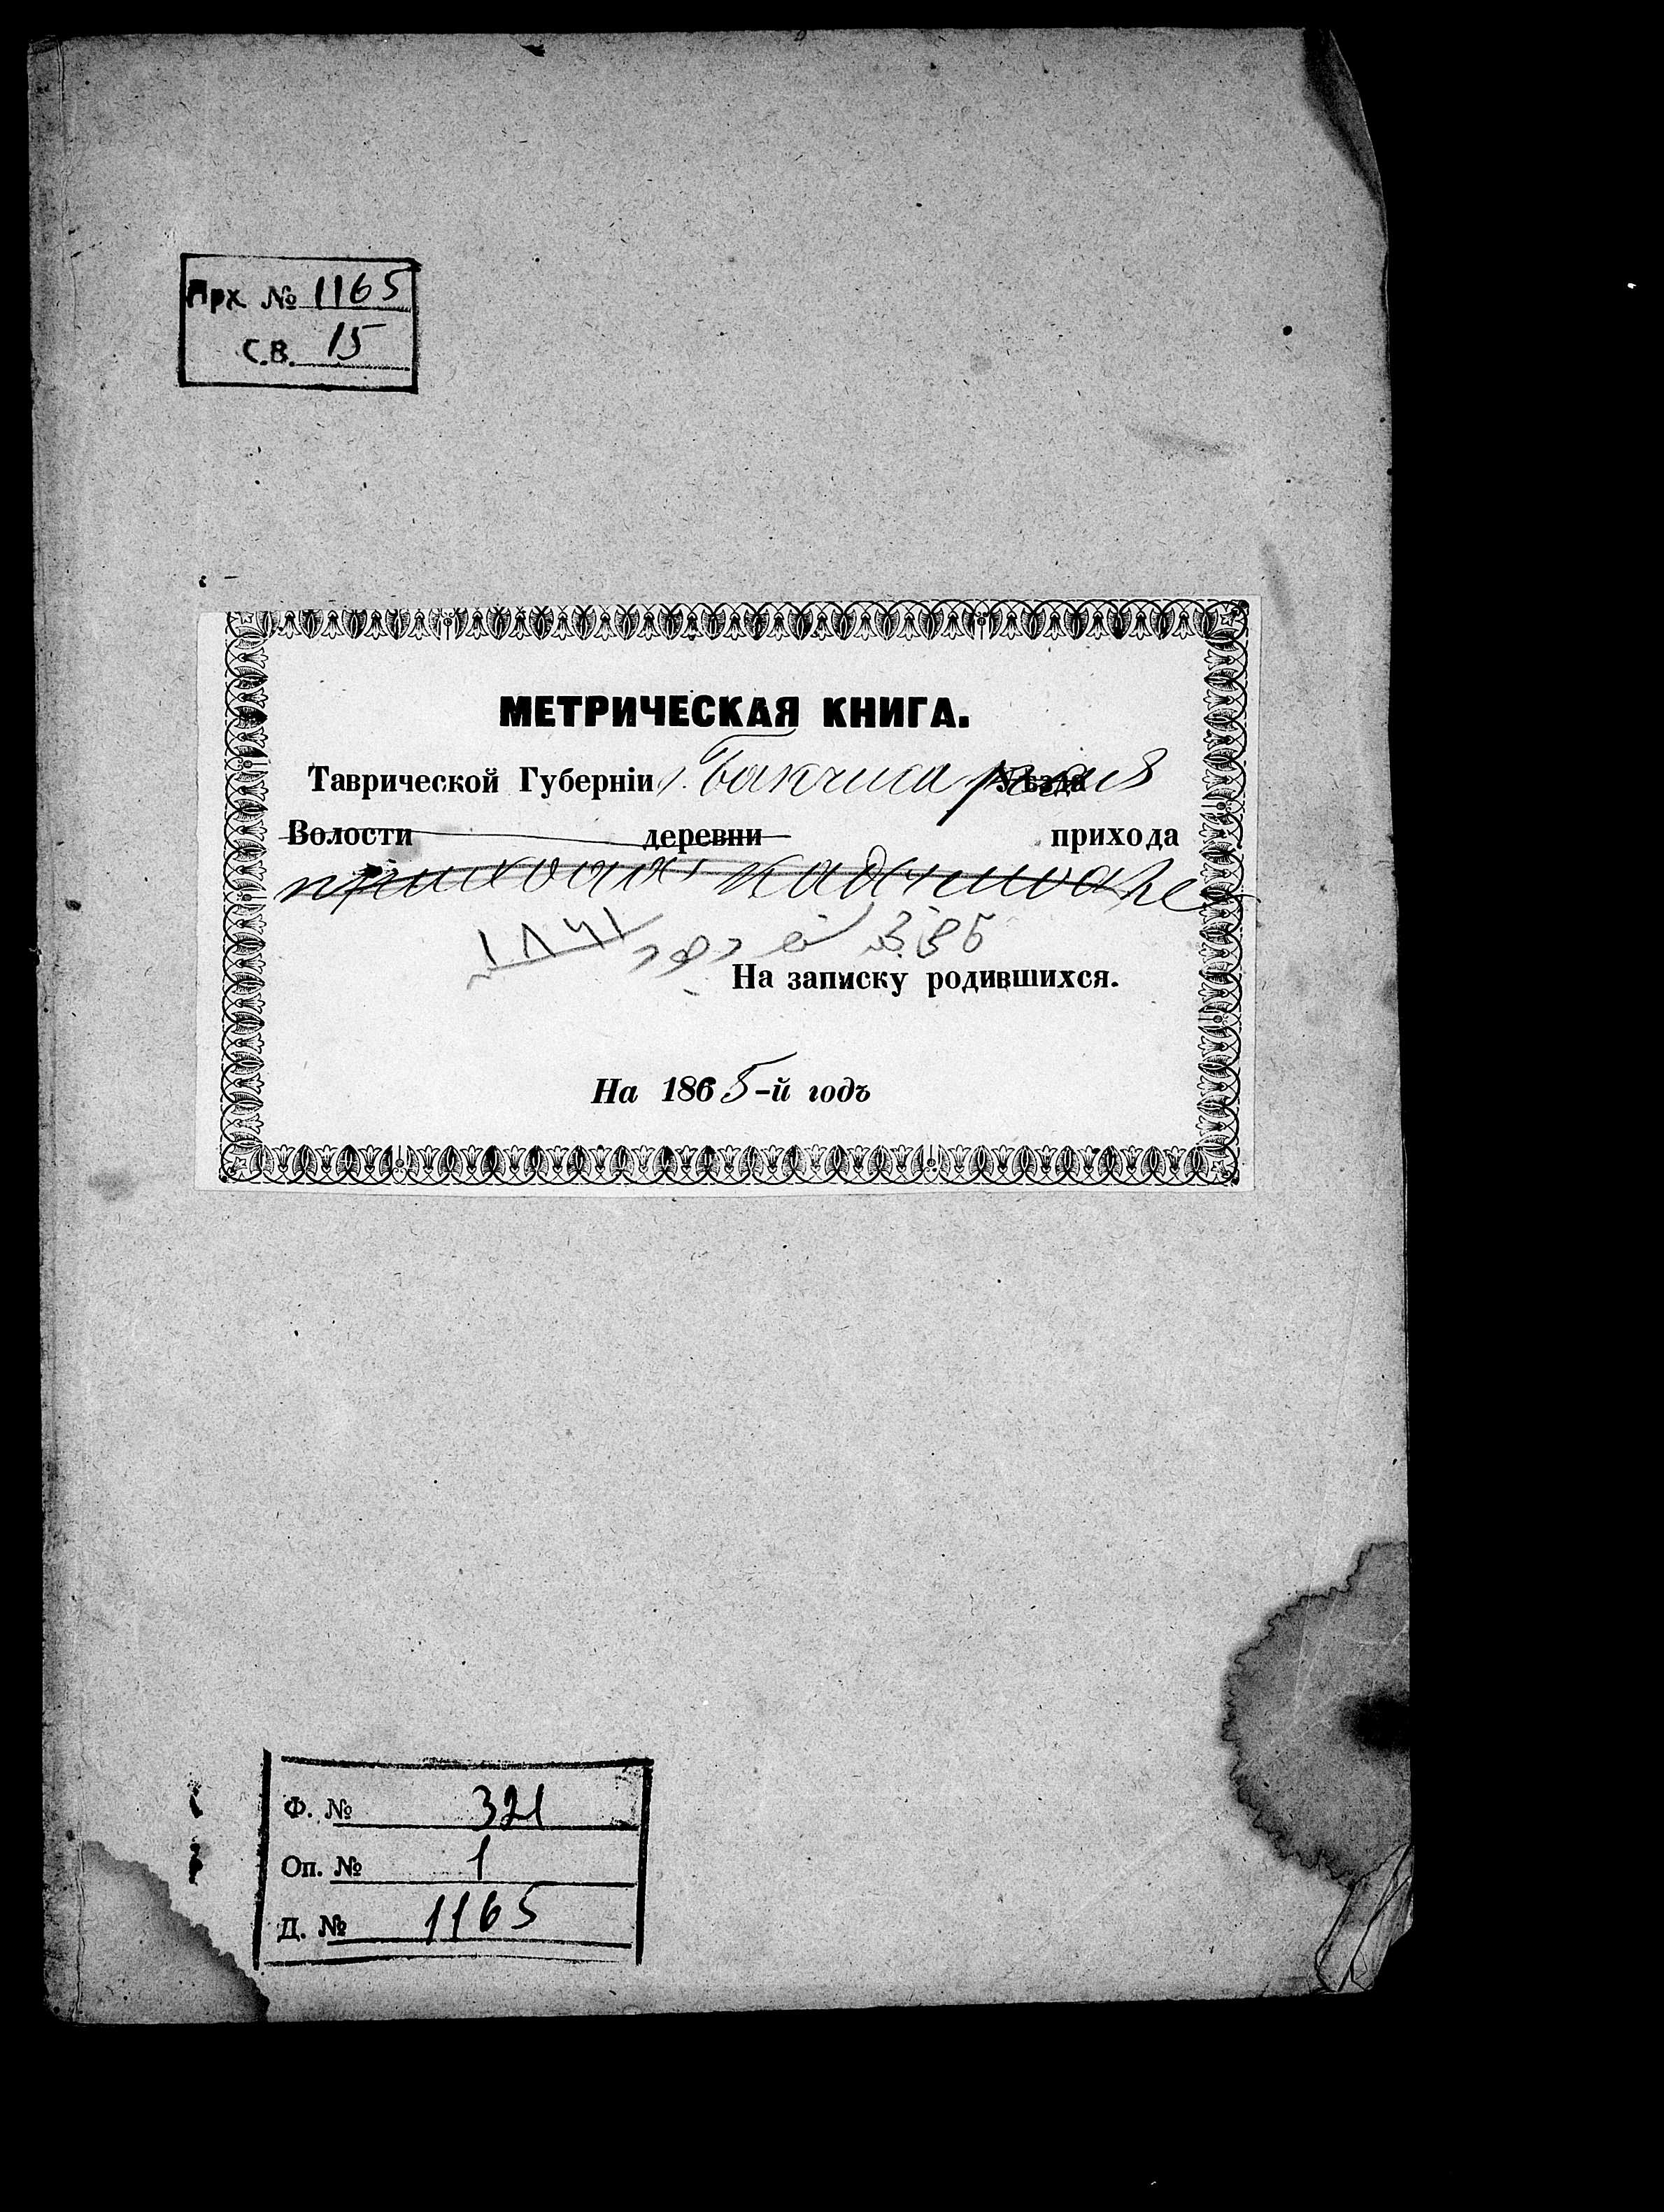 Арх № 1165
С.В. 15
МЕТРИЧЕСКАЯ КНИГА.
Таврической Губерніи г. Бакчисарая Уѣзда
Волости деревни прихода
прихода
На записку родившихся.
На 1865-й годъ
Ф. № 321
Оп. № 1
Д. № 1165